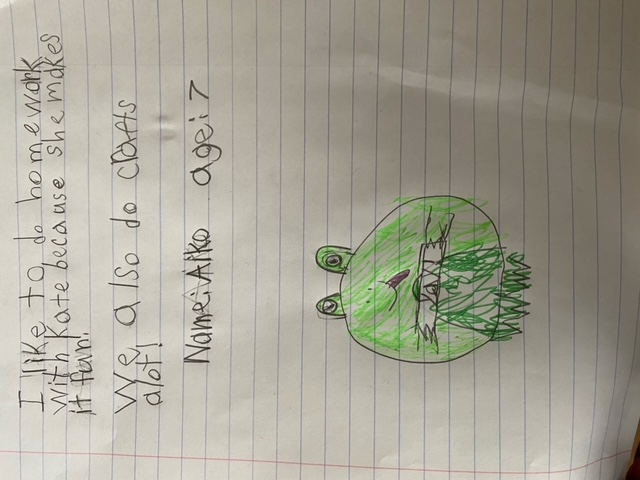 I like to do homework
with Kate because she makes
it fun!
We also do crafts
alot!
Name: Aiko age: 7